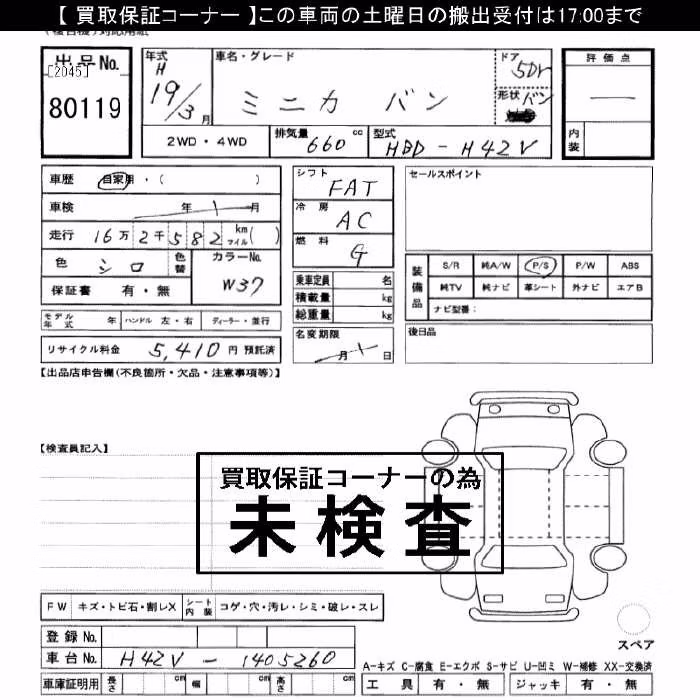 【 買取保証コーナー 】この車両の土曜日の搬出受付は17:00まで
出品No.
[2045]
80119
年式
H
19/3 月
車名・グレード
ミニカ バン
ドア
5Dr
形状 バン
評価点
—
内装
2WD・4WD
排気量 660 cc
型式 HBD-H42V
車歴 自家用・( )
車検 年 月
走行 16万2千582 km マイル( )
色 シロ
色替
カラーNo. W37
保証書 有・無
モデル年式 年
ハンドル 左・右
ディーラー・並行
リサイクル料金 5,410 円 預託済
シフト FAT
冷房 AC
燃料 G
乗車定員 名
積載量 kg
総重量 kg
名変期限
月 日
セールスポイント
装備品
S/R 純A/W P/S P/W ABS
純TV 純ナビ 革シート 外ナビ エアB
ナビ型番：
後日品
【出品店申告欄(不良箇所・欠品・注意事項等)】
【検査員記入】
買取保証コーナーの為
未検査
FW キズ・トビ石・割レX
シート内装 コゲ・穴・汚レ・シミ・破レ・スレ
登録No.
車台No. H42V-1405260
車庫証明用 長さ cm 幅 cm 高さ cm
スペア
A-キズ C-腐食 E-エクボ S-サビ U-凹ミ W-補修 XX-交換済
工具 有・無 ジャッキ 有・無